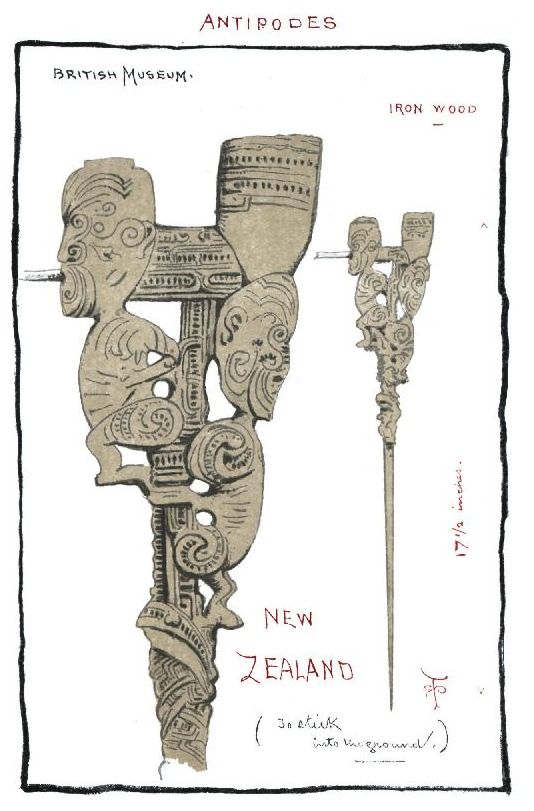 ANTIPODES
BRITISH MUSEUM.
IRON WOOD
17 1/2 inches.
NEW
ZEALAND
(To stick
into the ground.)